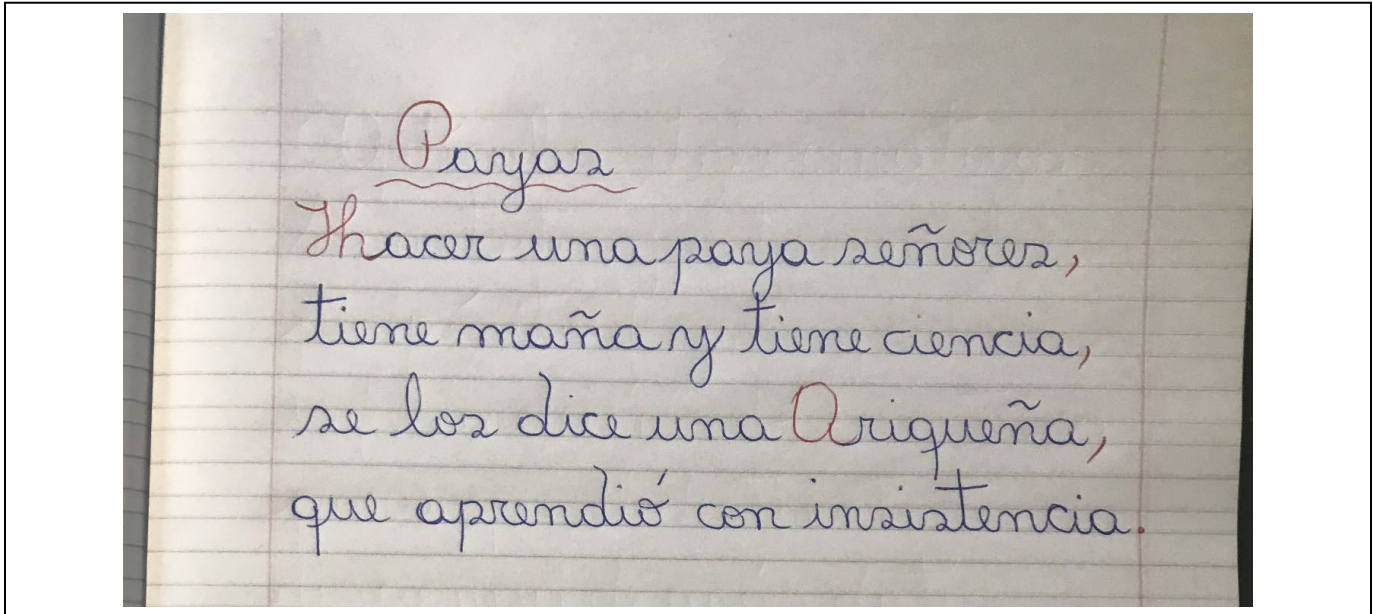 Payas
Hacer una paya señores,
tiene maña y tiene ciencia,
se los dice una Ariqueña,
que aprendió con insistencia.